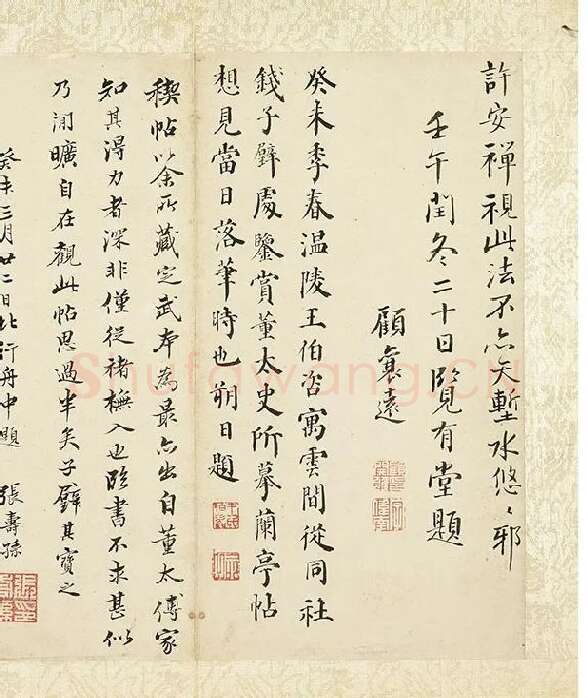 許安禪視此法不亦天塹水悠〻邪
壬午閏冬二十日覽有堂題
顧遠
癸未季春温陵王伯咨寓雲間從同社
錢子璧處鑒賞董太史所摹蘭亭帖
想見當日落筆時也朔日題
稧帖以余所藏定武本為最亦出自董太傅家
知其得力者深非僅從褚橅入也臨書不求甚似
乃閒曠自在觀此帖思過半矣子璧其寶之
癸未三月廿二日北行舟中題 張壽孫
Shufawang.CN